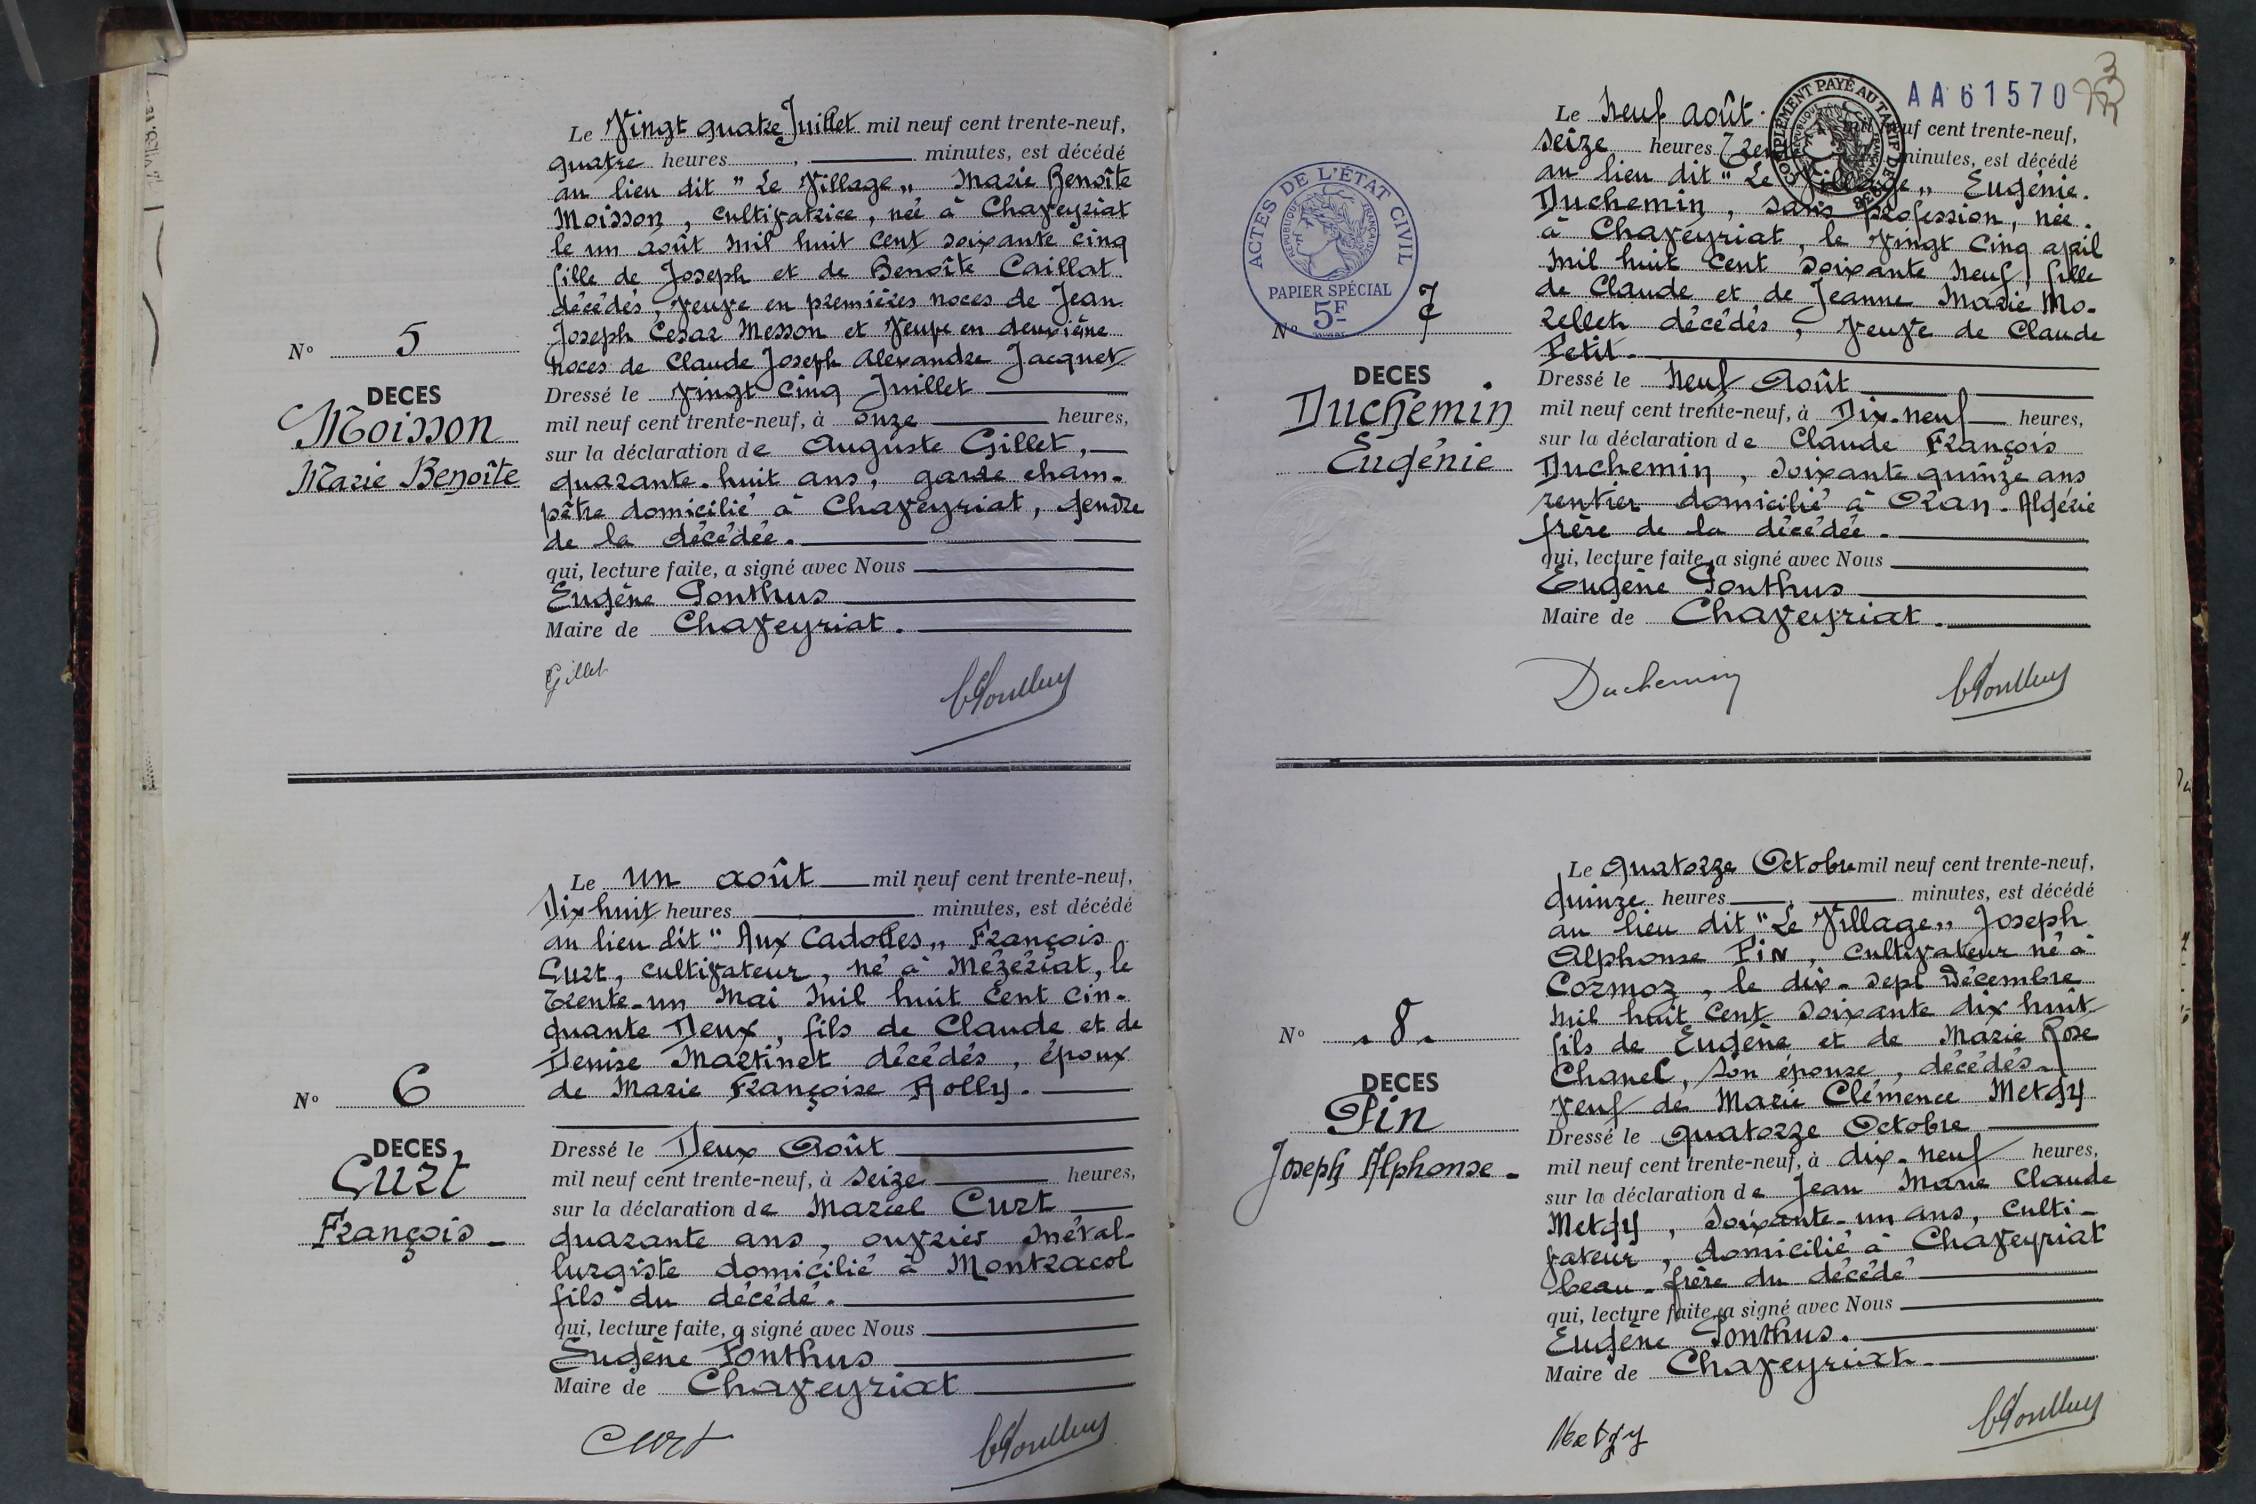 Le Vingt quatre Juillet mil neuf cent trente-neuf,
quatre heures, minutes, est décédé
au lieu dit " Le Village „ Marie Benoîte
Moisson, cultivatrice, née à Chaveyriat
le un août mil huit cent soixante cinq
fille de Joseph et de Benoîte Caillat
décédés, Veuve en premières noces de Jean
Joseph Cesar Messon et Veuve en deuxième
noces de Claude Joseph Alexandre Jacquet
N° 5
DECES
Moisson
Marie Benoîte
Dressé le Vingt cinq Juillet
mil neuf cent trente-neuf, à onze heures,
sur la déclaration de Auguste Gillet,
quarante-huit ans, garde cham-
pêtre domicilié à Chaveyriat, gendre
de la décédée.
qui, lecture faite, a signé avec Nous
Eugène Ponthus
Maire de Chaveyriat.
Gillet
Le un août mil neuf cent trente-neuf,
Dix huit heures minutes, est décédé
au lieu dit " Aux Cadolles „ François
Curt, cultivateur, né à Mézériat, le
trente-un Mai mil huit cent cin-
quante Deux, fils de Claude et de
Denise Martinet décédés, époux
de Marie Françoise Rolly.
N° 6
DECES
Curt
François -
Dressé le Deux Août
mil neuf cent trente-neuf, à seize heures,
sur la déclaration de Marcel Curt
quarante ans, ouvrier métal-
lurgiste domicilié à Montracol
fils du décédé.
qui, lecture faite, a signé avec Nous
Eugène Ponthus
Maire de Chaveyriat
Curt
AA 61570
3
COMPLÉMENT PAYÉ AU TARIF DE 1938
RÉPUBLIQUE FRANÇAISE
Le Neuf août mil neuf cent trente-neuf,
seize heures Trente minutes, est décédé
au lieu dit " Le Village „ Eugénie
Duchemin, sans profession, née
à Chaveyriat, le vingt cinq avril
mil huit cent soixante neuf, fille
de Claude et de Jeanne Marie Mo-
rellet décédés, veuve de Claude
Petit.
ACTES DE L'ÉTAT CIVIL
RÉPUBLIQUE FRANÇAISE
PAPIER SPÉCIAL
5F
N° 7
DECES
Duchemin
Eugénie
Dressé le Neuf Août
mil neuf cent trente-neuf, à Dix-neuf heures,
sur la déclaration de Claude François
Duchemin, soixante quinze ans
rentier domicilié à Oran-Algérie
frère de la décédée.
qui, lecture faite, a signé avec Nous
Eugène Ponthus
Maire de Chaveyriat.
Duchemin
Le quatorze Octobre mil neuf cent trente-neuf,
quinze heures, minutes, est décédé
au lieu dit " Le Village „ Joseph
Alphonse Pin, cultivateur né à
Cormoz, le dix-sept Décembre
mil huit cent soixante dix huit
fils de Eugène et de Marie Rose
Chanel, son épouse, décédés.
Veuf de Marie Clémence Metgy
N° 8
DECES
Pin
Joseph Alphonse -
Dressé le quatorze Octobre
mil neuf cent trente-neuf, à dix-neuf heures,
sur la déclaration de Jean Marie Claude
Metgy, soixante-un ans, culti-
vateur, domicilié à Chaveyriat
beau-frère du décédé
qui, lecture faite, a signé avec Nous
Eugène Ponthus.
Maire de Chaveyriat.
Metgy